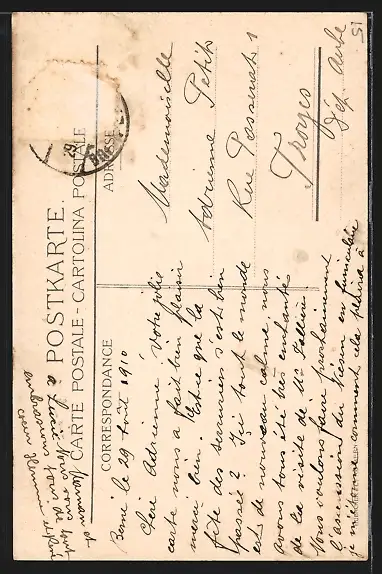 POSTKARTE.
CARTE POSTALE - CARTOLINA POSTALE
CORRESPONDANCE
ADRESSE
29
51
Mademoiselle
Adrienne Petit
Rue
Troyes
Dép Aube
Berne le 29 Août 1910
Chère Adrienne, Votre jolie
carte nous a fait bien plaisir
merci bien. Est-ce que la
fête des s'est bien
passée? Ici tout le monde
est de nouveau calme, nous
avons tous été très enchantés
de la visite de Mr
Nous voulons faire prochainement
l'ascension du Niesen en funiculaire
je comment cela plaira à
maman et
à Lucie. Nous vous
embrassons de
cœur